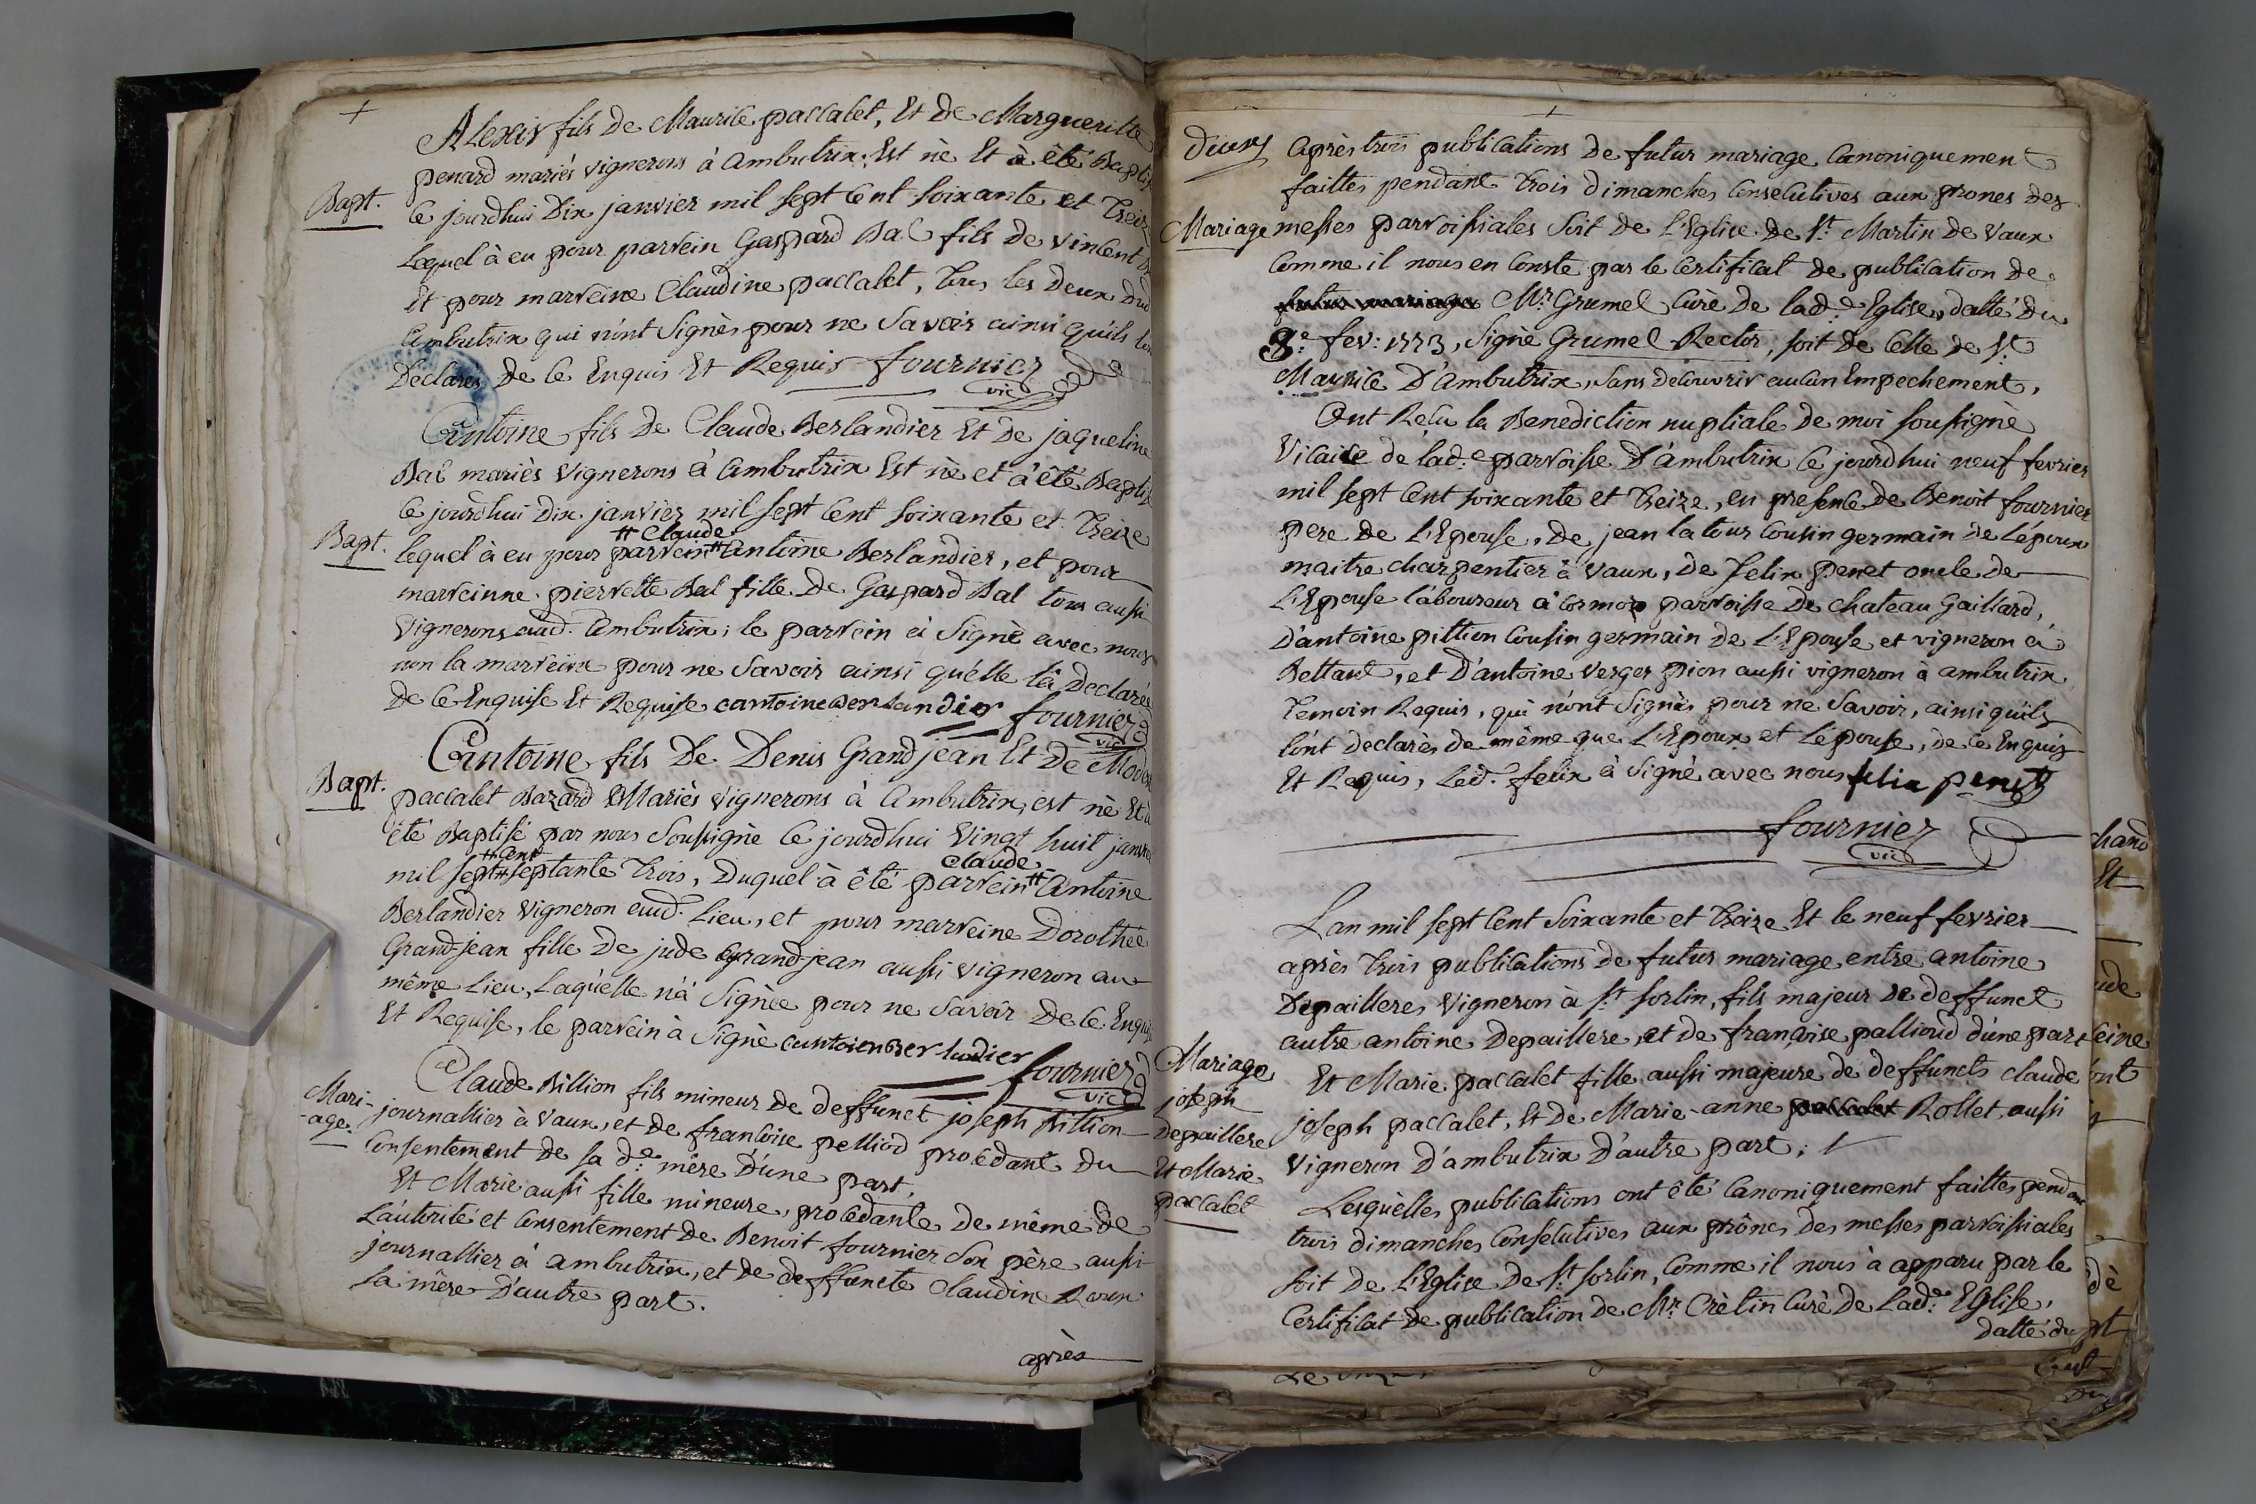 Alexis fils de Maurice paccalet, Et de Margueritte
penard mariés vignerons à ambutrix, Est nè Et à êté
Bapt.
ce jourdhui Dix janvier mil sept cent soixante et Treize
Lequel à eu pour parrein Gaspard Bal fils de vincent
Et pour marreine Claudine paccalet, Tous les deux dud
ambutrix qui n'ont Signès pour ne Savoir ainsi qu'ils
Declarés de ce Enquis Et Requis fournier
vic
Antoine fils De Claude Berlandier Et De jaqueline
Bal mariès Vignerons à ambutrix Est nè et à êté
ce jourdhui Dix janvier mil sept cent soixante et Treize
# Claude
Bapt.
lequel à eu pour parrein # antoine Berlandier, et pour
marreinne pierrette Bal fille De Gaspard Bal tous aussi
Vignerons aud. ambutrix; le parrein à Signè avec nous
non la marreine pour ne Savoir ainsi qu'elle l'à declarée
de ce Enquise Et Requise antoine berlandier fournier
vic
Antoine fils De Denis Grandjean Et De
Bapt.
paccalet Bazard Mariès Vignerons à Ambutrix, est nè Et à
êté Baptisé par nous Soussignè ce jourdhui Vingt huit
# Cent
Claude
mil sept # septante Trois, Duquel à êté parrein # antoine
Berlandier Vigneron aud. Lieu, et pour marreine Dorothée
Grand-jean fille De jude Grandjean aussi vigneron au
même Lieu, Laquelle n'à Signèe pour ne Savoir De ce
Et Requise, le parrein à Signè antoine berlandier
fournier
vic
Claude Billion fils mineur de deffunct joseph Billion
Mari-
-age.
journallier à Vaux, et de francoise pelliod procédant du
Consentement de sa de mêre D'une part,
Et Marie aussi fille mineure, procédante de même de
L'autorité et consentement de Benoit fournier Son père aussi
journallier à ambutrix, et de deffuncte Claudine Roux
Sa mère D'autre part.
après
Après trois publications De futur mariage Canoniquement
faittes pendant Trois dimanches Consecutives aux prones des
Mariage
messes parroissiales Soit de L'Eglise de St. Martin de Vaux
Comme il nous en conste par le Certificat de publication de
futur mariage Mr. Grumel Curè De lad.e Eglise, datté du
8e. fev: 1773, Signè Grumel Rector, soit de celle de St.
Maurice D'ambutrix, sans découvrir aucun Empechement,
Ont Reçu la Benediction nuptiale De moi soussignè
Vicaire de lad.e parroisse D'ambutrix ce jourdhui neuf fevrier
mil sept cent soixante et Treize, en presence de Benoit fournier
pere De L'Epouse, De jean la tour Cousin germain De L'époux
maitre charpentier à Vaux, de felix penet oncle de
L'Epouse láboureur à cormoz parroisse De chateau Gaillard,
D'antoine pittion Cousin germain De L'Epouse et vigneron à
Bettant, et D'antoine Verger pion aussi vigneron à ambutrix
Temoin Requis, qui n'ont Signès pour ne Savoir, ainsi qu'ils
l'ont declarès de même que L'Epoux et L'épouse, de ce Enquis
Et Requis, led. felix à Signè avec nous felix penet
fournier
vic
L'an mil sept cent Soixante et Treize Et le neuf fevrier
après Trois publications De futur mariage entre antoine
Depailleres Vigneron à St. Sorlin, fils majeur De deffunct
autre antoine Depaillere, et de françoise pallioud d'une part
Mariage
joseph
Depaillere
Et Marie
paccalet
Et Marie paccalet fille aussi majeure de deffuncts claude
joseph paccalet, Et de Marie-anne paccalet Rollet, aussi
Vigneron D'ambutrix D'autre part;
Lesquèlles publications ont êté Canoniquement faittes pendant
trois dimanches Consecutives aux prônes des messes parroissiales
soit de L'Eglise De St. Sorlin, Comme il nous à apparu par le
Certificat De publication de Mr. Crètin Curè De Lad.e Eglise,
datté du